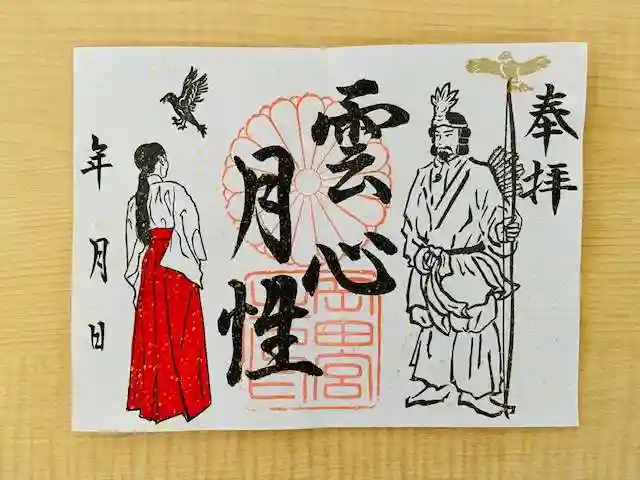 奉拝
雲心
月性
岡田宮
年 月 日